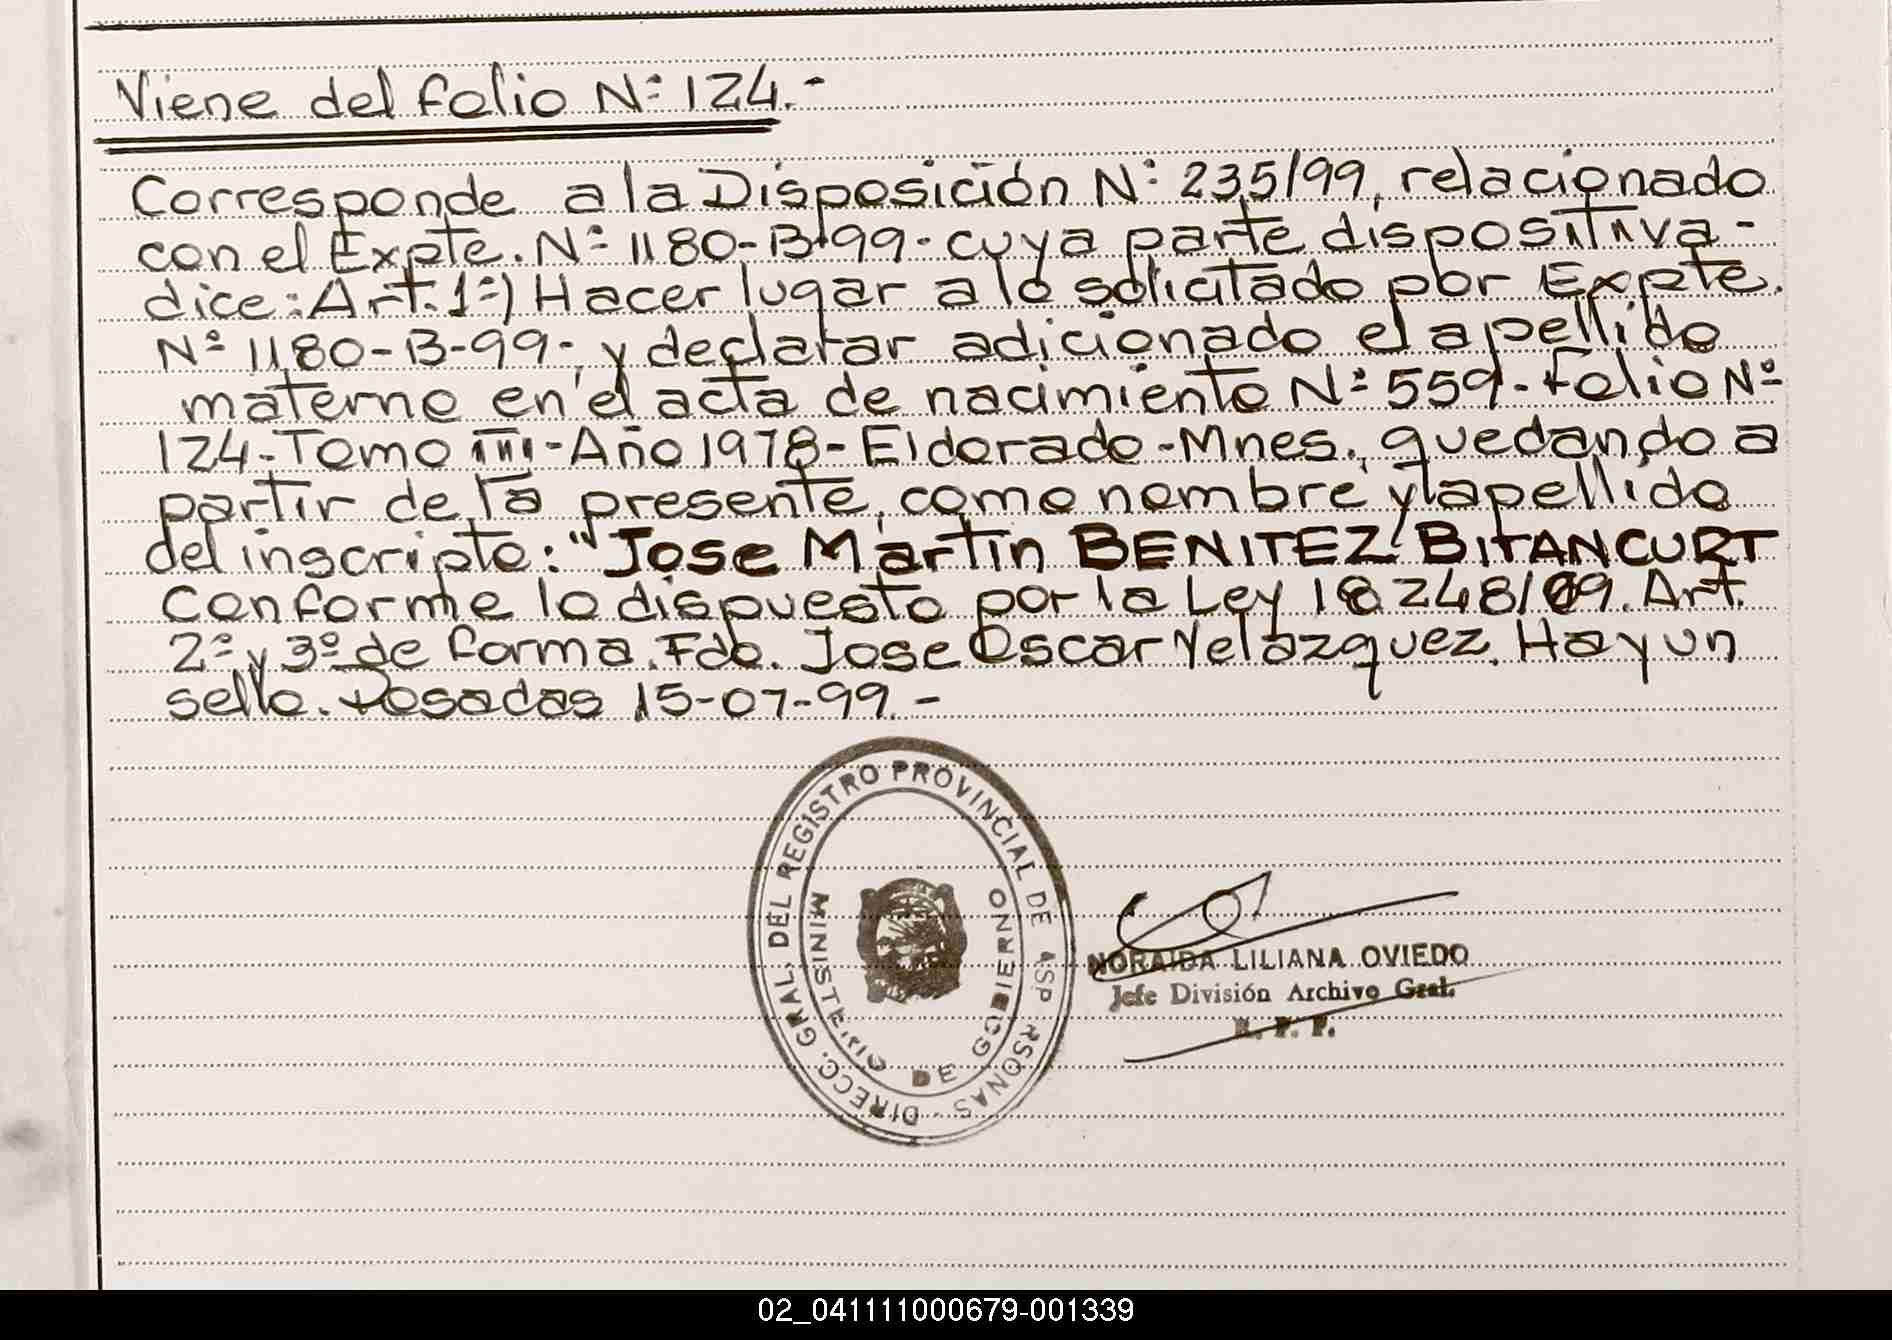 Viene del folio Nº 124.-
Corresponde a la Disposición Nº 235/99, relacionado
con el Expte. Nº 1180-B-99- cuya parte dispositiva -
dice: Art. 1º) Hacer lugar a lo solicitado por Expte.
Nº 1180-B-99-, y declarar adicionado el apellido
materno en el acta de nacimiento Nº 559- Folio Nº
124- Tomo III- Año 1978- Eldorado -Mnes., quedando a
partir de la presente, como nombre y apellido
del inscripto: "Jose Martin BENITEZ BITANCURT
Conforme lo dispuesto por la Ley 18248/69. Art.
2º y 3º de forma. Fdo. Jose Oscar Velazquez. Hay un
sello. Posadas 15-07-99.-
DIRECC. GRAL. DEL REGISTRO PROVINCIAL DE
DE GOBIERNO
NORAIDA LILIANA OVIEDO
Jefe División Archivo Gral.
R. P. P.
02_041111000679-001339